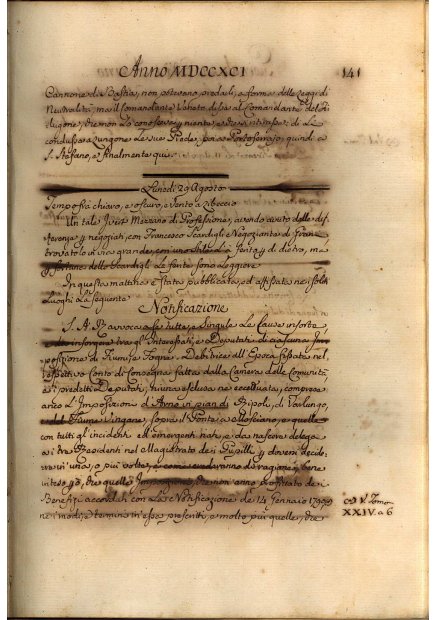 Anno MDCCXCI 141
Cannone da Bastia, non potevano predarli, a forma delle Leggi di
Neutralità, ma il Comandante Veneto disse al Comandante del
non Lo conosceva niente, e
condusse a Lungone Le sue Prede, poi a Portoferraio, quindi a
S. Stefano, e finalmente qui
Lunedì 29 Agosto
Tempo fra chiaro, e oscuro, e Vento a Libeccio
Un tale di Professione, avendo avuto delle dif-
ferenze negoziati, con Francesco Scardigli e Negoziante di
trovatolo in via grande, con uno Stile di dietro, ma
p. fortuna dello Scardigli Le ferite sono Leggiere
In questa mattina è stata pubblicata, ed affissata nei soliti
Luoghi La seguente
Notificazione
S. A. R. avoca a se tutte, e singule Le Cause insorte,
o da insorgere tra gl'Interessati, e Deputati di ciascuna Im-
posizione di Fiumi, e Fogne, Debitrice all'Epoca fissata nel
respettivo Conto di Consegna fatta dalla Camera delle Comunità
a i predetti Deputati, niuna esclusa ne eccettuata, comprese
anco L'Imposizioni d'Arno in pian di Ripoli, di
del Fiume Vingone, sopra il Ponte a, e quelle
con tutti gl'incidenti ed emergenti nati, e da nascere delega
a i tre Residenti nel Magistrato dei Pupilli p. doversi decide-
re in una, o più volte, e come sarà di ragione, bene
inteso p.ò, che quelle Imposizioni, che non anno profittato dei
Benefizi accordati con La Notificazione de 14 Gennaio 1790,
nei modi, e termini in essa prescritti, e molto più quelle, che
V. Tomo
XXIV. a 6